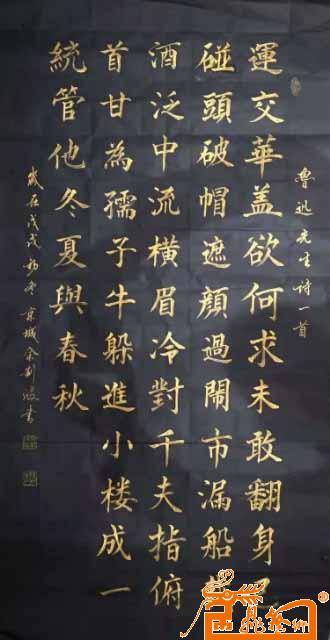 魯迅先生詩一首
運交華盖欲何求未敢翻身已
碰頭破帽遮顔過鬧市漏船載
酒泛中流橫眉冷對千夫指俯
首甘為孺子牛躲進小楼成一
統管他冬夏與春秋
歲在戊戌初冬京城余書